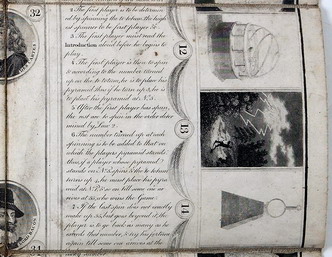 32
2 The first player is to be determin-
ed by spinning the te totum, the high-
est spinner to be first player &c
3 The first player must read the
Introduction aloud before he begins to
play.
4 The first player is then to spin
& according to the number turned
up on the te totum, he is to place his
pyramid, thus if he turn up 5, he is
to place his pyramid at Nº. 5.
5 After the first player has spun,
the rest are to spin in the order deter
mined by Law 2.
6 The number turned up at each
spinning is to be added to that on
which the players pyramid stands,
thus, if a player whose pyramid
stands on Nº. 5, spins & the te totum
turns up
he must place his pyra
mid at Nº.
& so on till some one ar
rives at 35, who wins the Game.
7 If the last spin does not exactly
make up 35, but goes beyond it, the
player is to go back as many as he
exceeds that number, & try his fortune
again till some one arrives at the
12
13
14
34